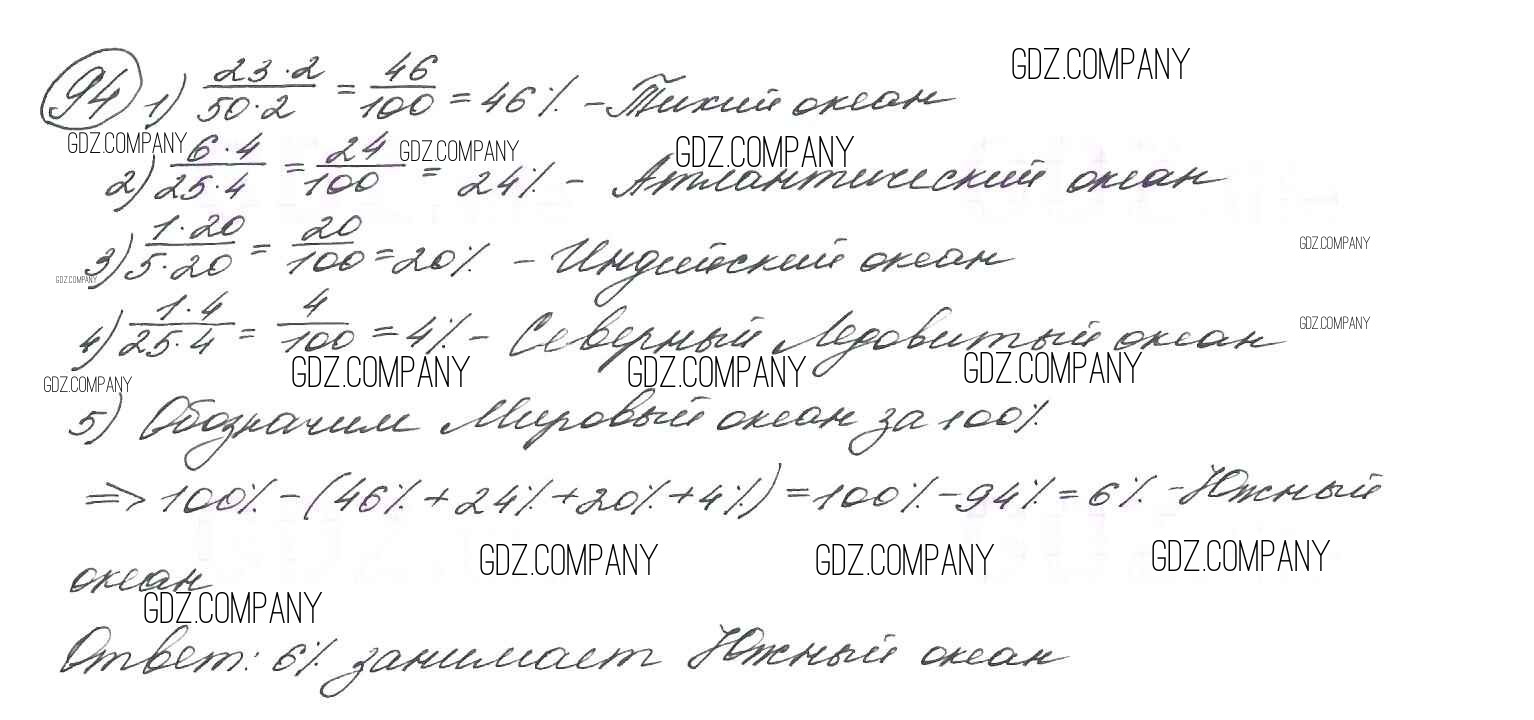 GDZ.COMPANY
94 1) 23·2/50·2 = 46/100 = 46% - Тихий океан
GDZ.COMPANY GDZ.COMPANY GDZ.COMPANY
2) 6·4/25·4 = 24/100 = 24% - Атлантический океан
GDZ.COMPANY
3) 1·20/5·20 = 20/100 = 20% - Индийский океан
GDZ.COMPANY
4) 1·4/25·4 = 4/100 = 4% - Северный Ледовитый океан
GDZ.COMPANY
GDZ.COMPANY GDZ.COMPANY GDZ.COMPANY GDZ.COMPANY
5) Обозначим Мировый океан за 100%
=> 100% - (46% + 24% + 20% + 4%) = 100% - 94% = 6% - Южный
GDZ.COMPANY GDZ.COMPANY GDZ.COMPANY
океан
GDZ.COMPANY
Ответ: 6% занимает Южный океан